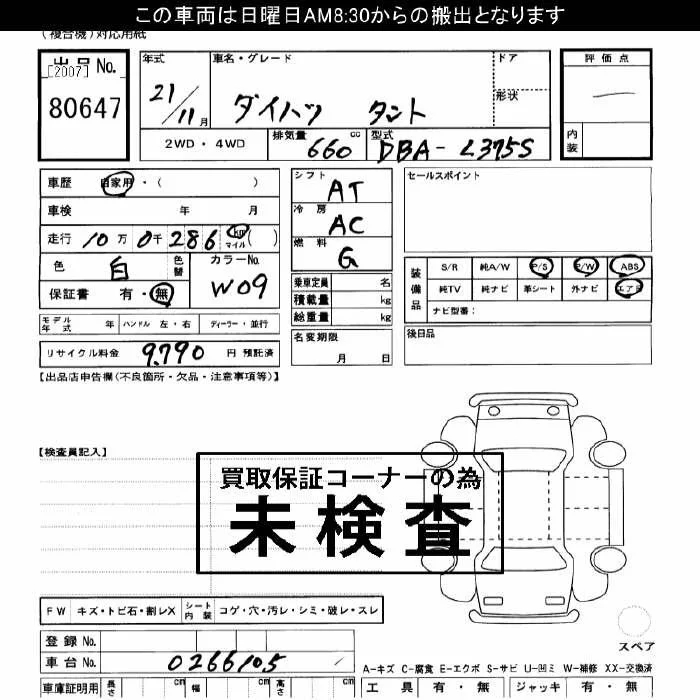 この車両は日曜日AM8:30からの搬出となります
(複合機)対応用紙
出品 No.
[2007]
80647
年式
21/11月
車名・グレード
ダイハツ タント
ドア
形状
評価点
内装
2WD・4WD
排気量
660 cc
型式
DBA-L375S
車歴 自家用・( )
車検 年 月
走行 10万0千286 km マイル ( )
色 白
色替
カラーNo.
W09
保証書 有・無
シフト AT
冷房 AC
燃料 G
乗車定員 名
積載量 kg
総重量 kg
名変期限
月 日
セールスポイント
装備品
S/R 純A/W P/S P/W ABS
純TV 純ナビ 革シート 外ナビ エアB
ナビ型番:
後日品
モデル年式 年 ハンドル 左・右 ディーラー・並行
リサイクル料金 9,790 円 預託済
【出品店申告欄(不良箇所・欠品・注意事項等)】
【検査員記入】
買取保証コーナーの為
未検査
FW キズ・トビ石・割レX シート内装 コゲ・穴・汚レ・シミ・破レ・スレ
スペア
登録 No.
車台 No. 0266105
A-キズ C-腐食 E-エクボ S-サビ U-凹ミ W-補修 XX-交換済
車庫証明用 長さ cm 幅 cm 高さ cm
工具 有・無 ジャッキ 有・無